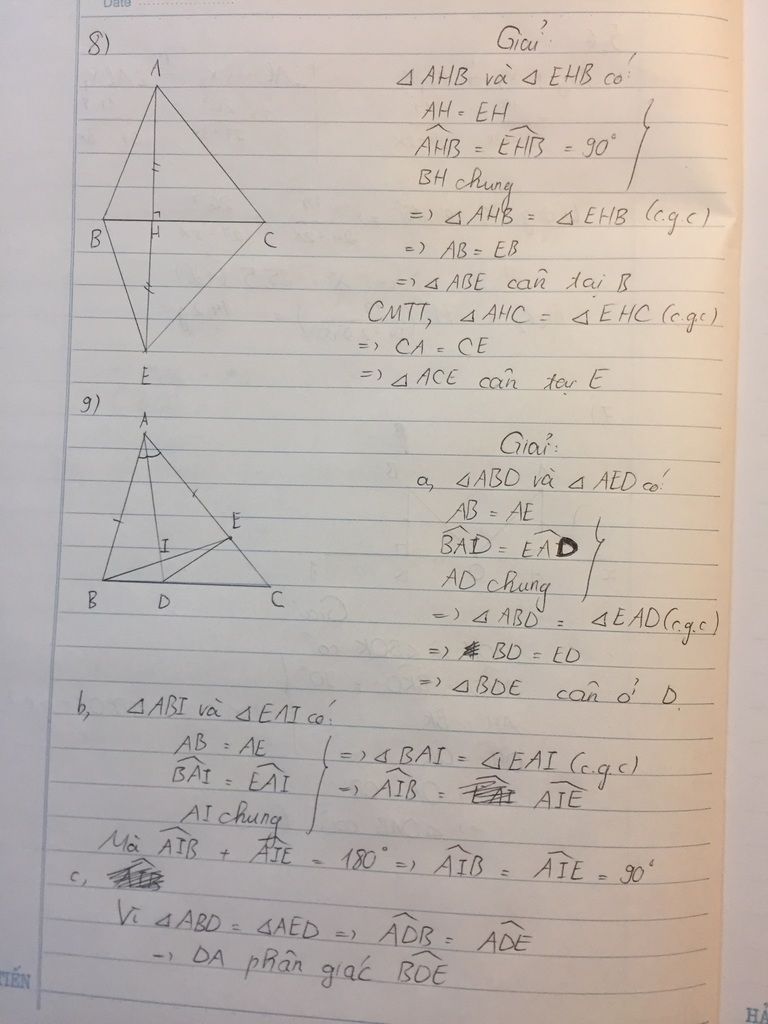 Date
8)
Giải:
A
B
H
C
E
△ AHB và △ EHB có:
AH = EH
AHB = EHB = 90°
BH chung
=> △ AHB = △ EHB (c.g.c)
=> AB = EB
=> △ ABE cân tại B
CMTT, △ AHC = △ EHC (c.g.c)
=> CA = CE
=> △ ACE cân tại E
9)
A
E
I
B
D
C
Giải:
a, △ABD và △ AED có:
AB = AE
BAD = EAD
AD chung
=> △ ABD = △EAD (c.g.c)
=> BD = ED
=> △BDE cân ở D.
b, △ABI và △EAI có:
AB = AE
BAI = EAI
AI chung
=> △BAI = △EAI (c.g.c)
=> AIB = AIE
Mà AIB + AIE = 180° => AIB = AIE = 90°
c,
Vì △ABD = △AED => ADB = ADE
=> DA phân giác BDE
TIẾN
HẢ